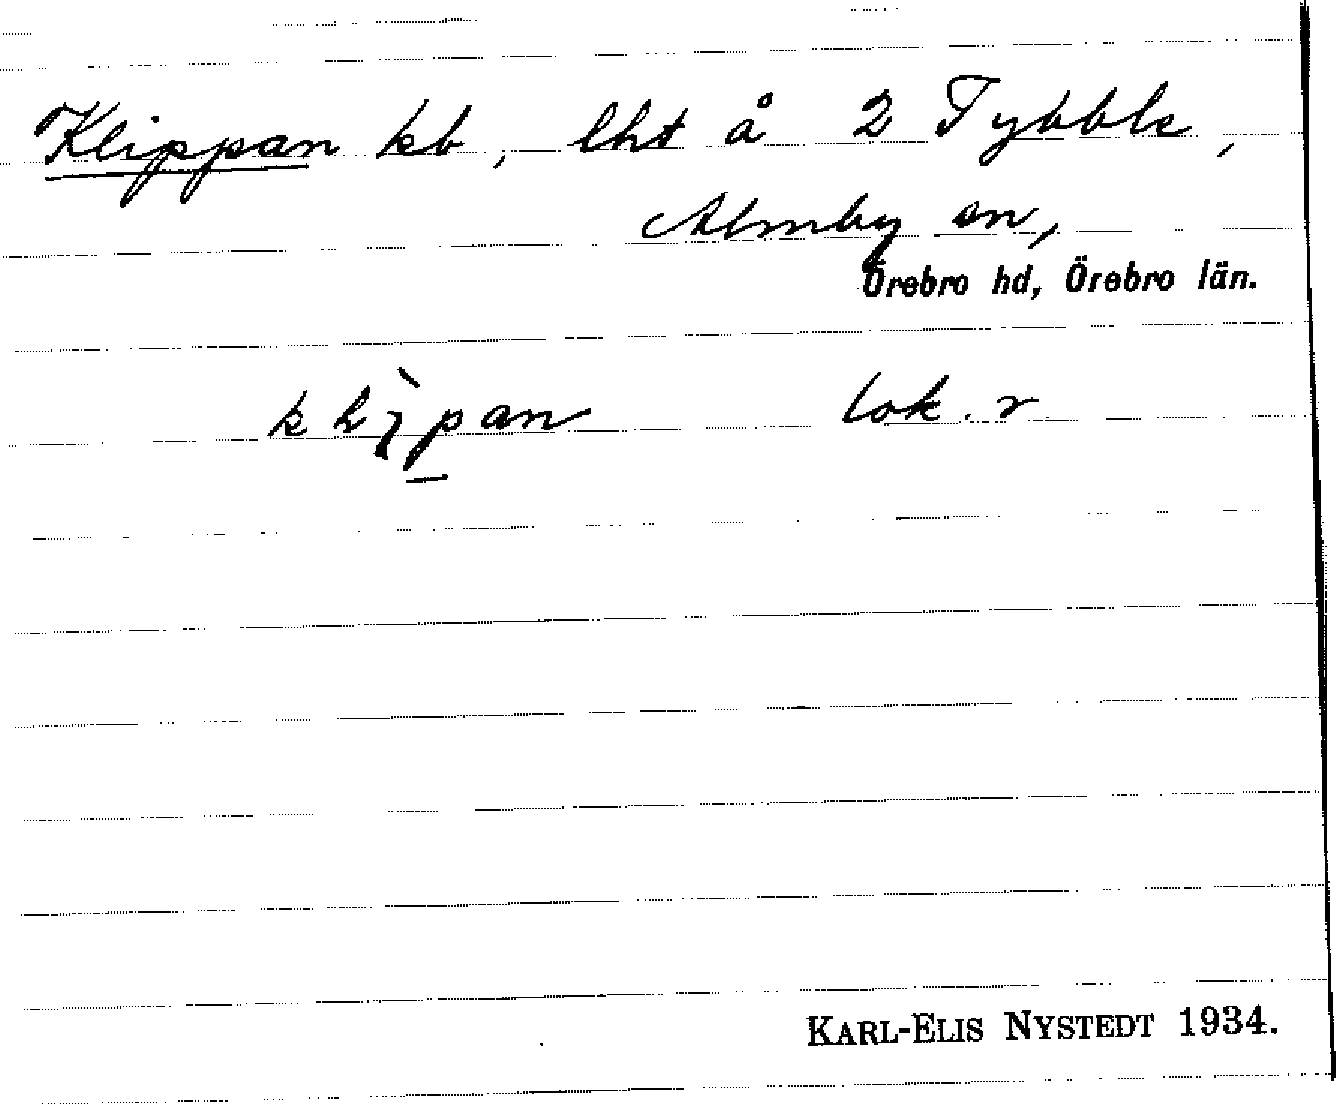 Klippan kb, lht å 2 Tybble,
Almby sn,
Örebro hd, Örebro län.
lok. r
KARL-ELIS NYSTEDT 1934.